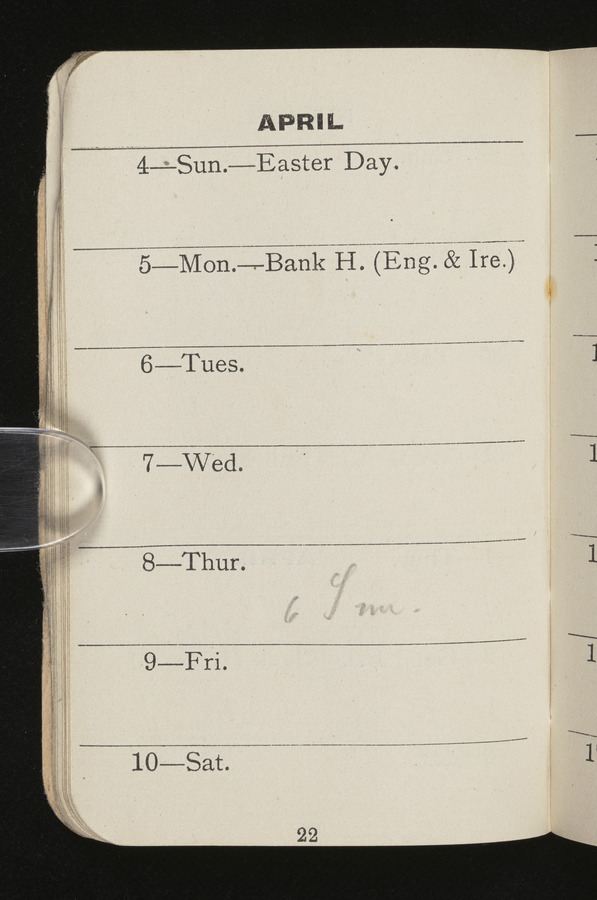 APRIL
4—Sun.—Easter Day.
5—Mon.—Bank H. (Eng. & Ire.)
6—Tues.
7—Wed.
8—Thur.
6
9—Fri.
10—Sat.
22